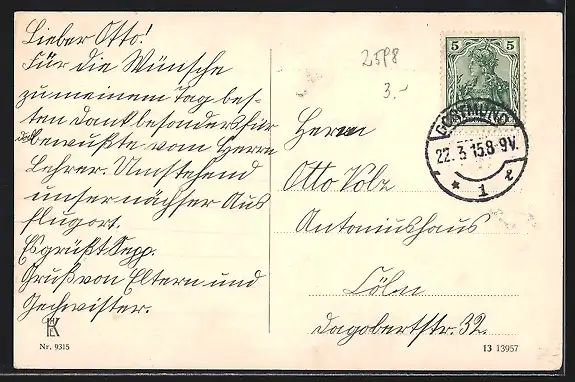 Lieber Otto!
Für die Wünsche
zu meinem Tag bes-
ten Dank besonders für
das bewußte vom Herrn
Lehrer. Umstehend
unser nächster Aus
flugort.
Es grüßt Sepp.
Gruß von Eltern und
Geschwister.
Nr. 9315
2598
3.-
5 5
DORTMUND
22. 3 15. 8-9V.
* 1 r
Herrn
Otto Volz
Antoniushaus
Cöln
Dagobertstr. 32.
13 13957